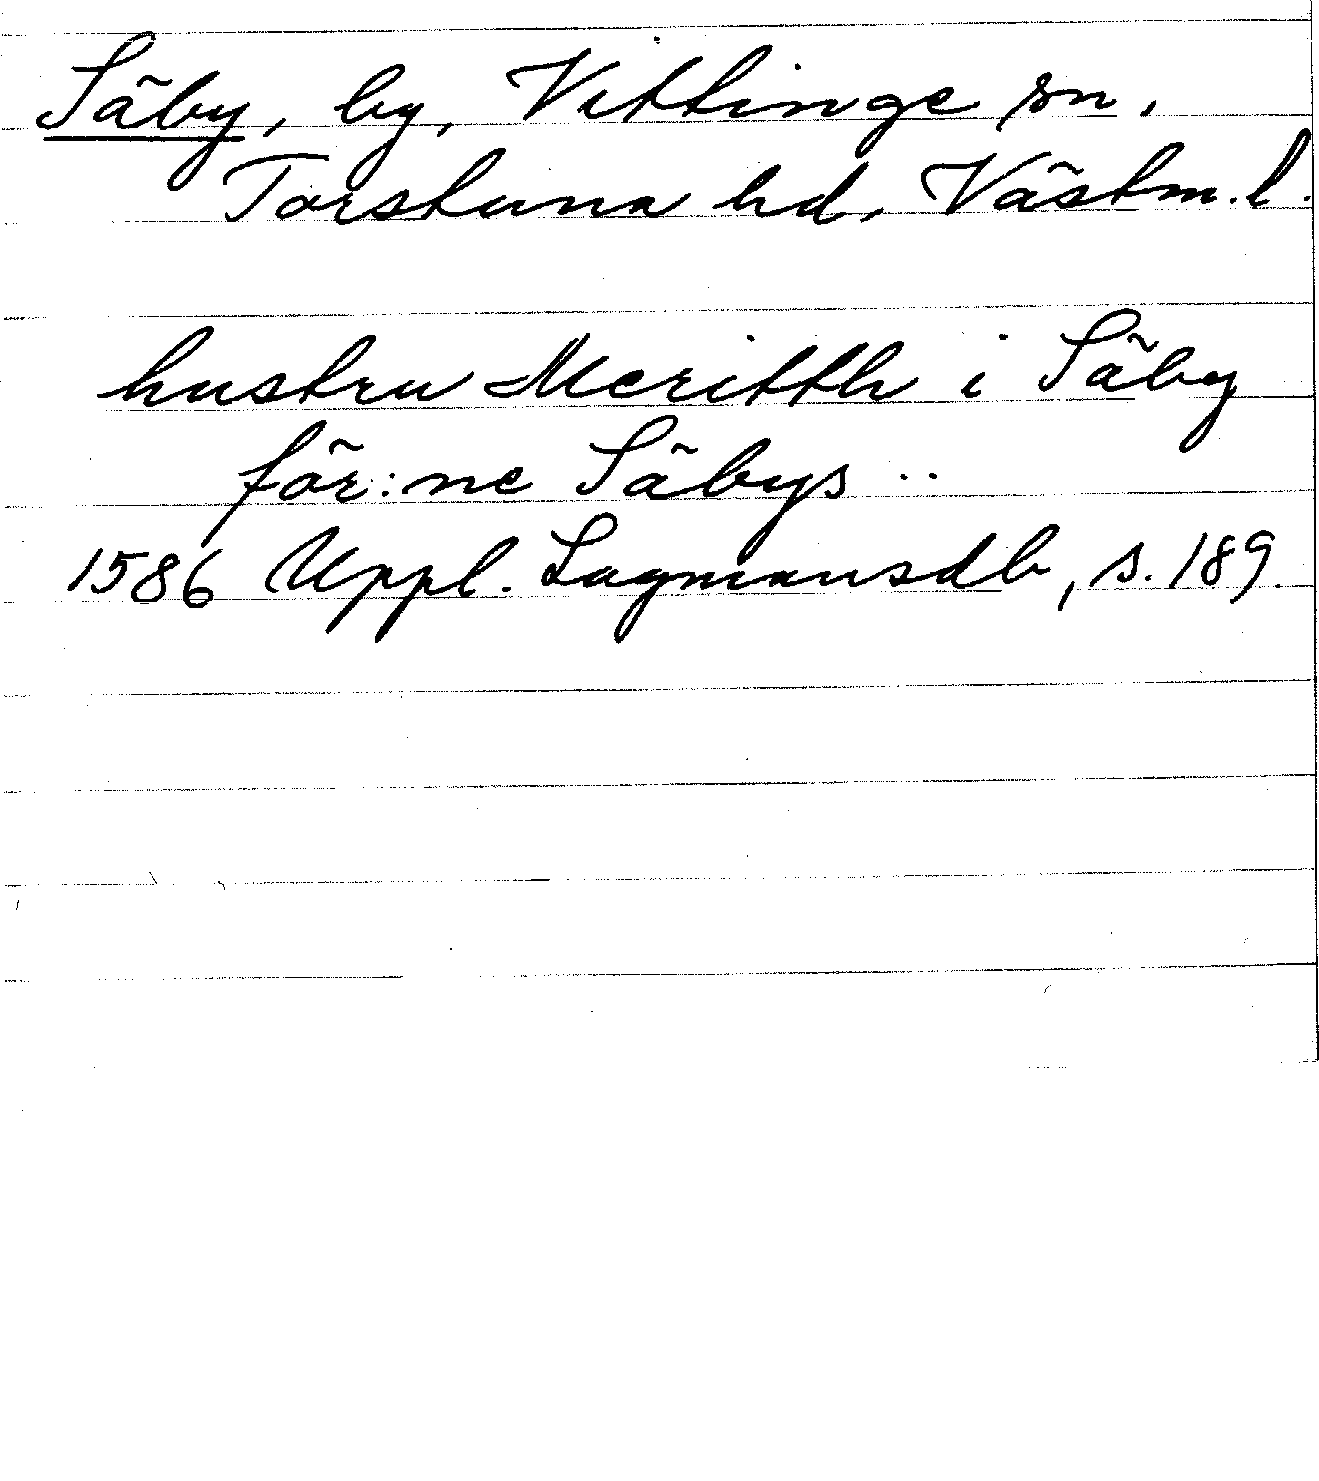 Säby, by, Vittinge sn,
Torstuna hd, Västm. l.
hustru Meritth i Säby
för:ne Säbys ..
1586 Uppl. Lagmansdb, s. 189.